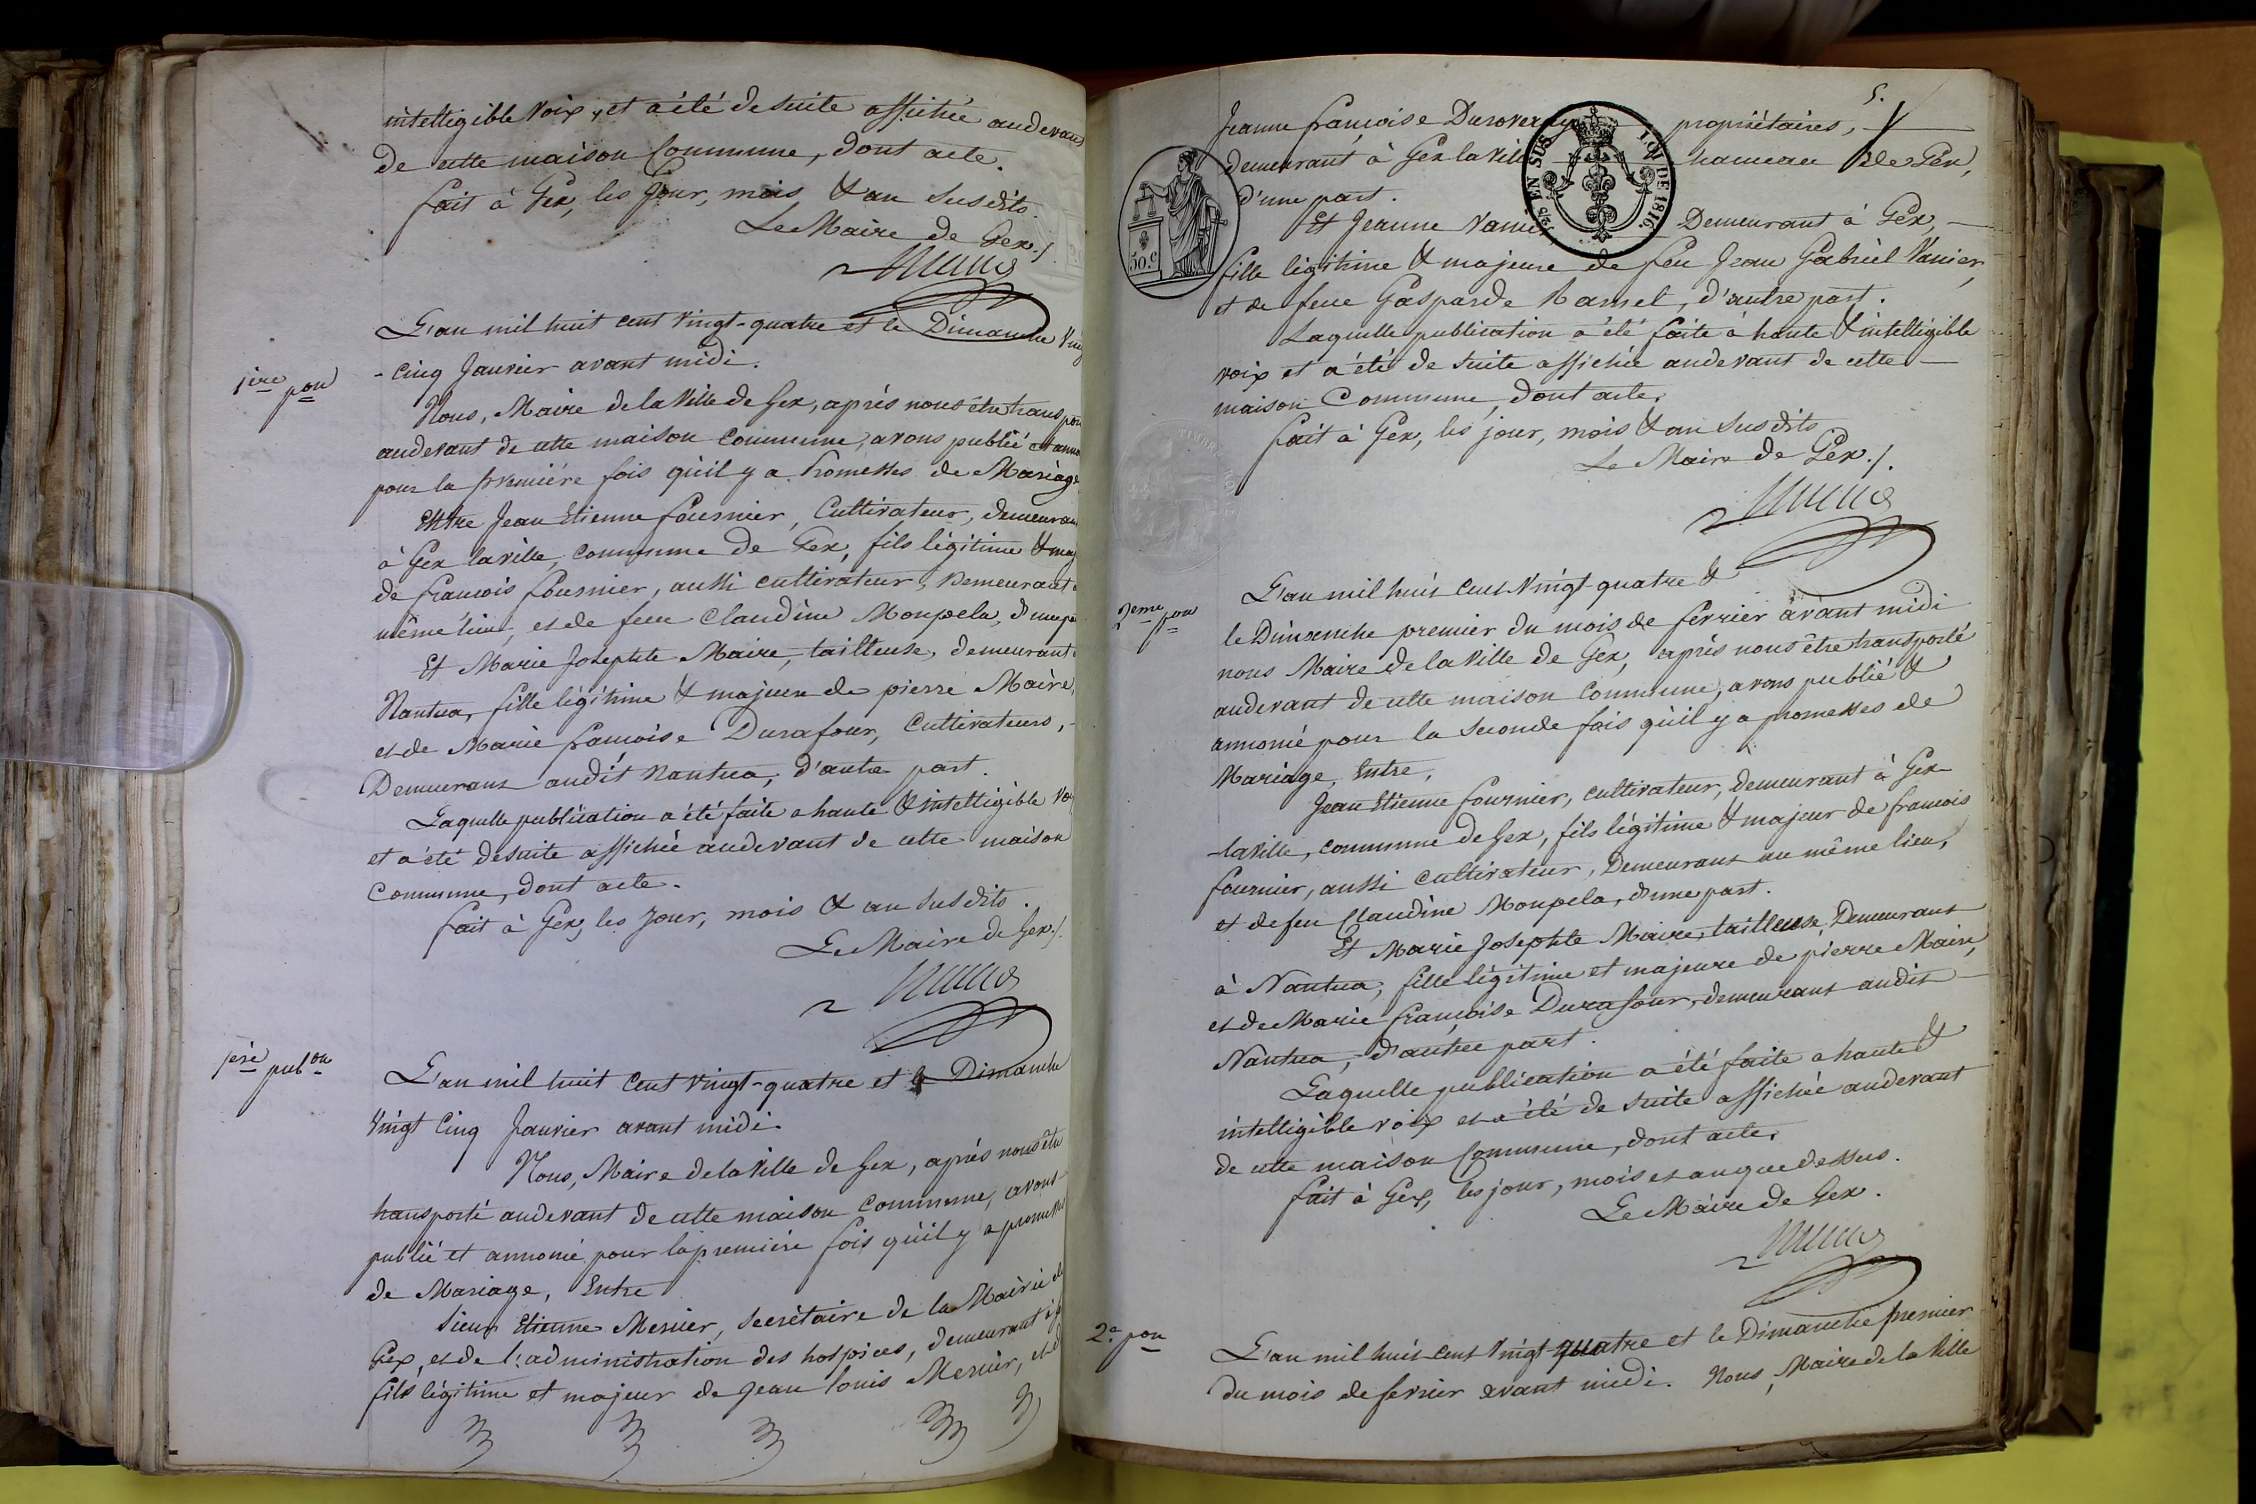 intelligible voix, et a été de suite affichée audevant
de cette maison Commune, dont acte.
fait à Gex, les Jour, mois & an susdits.
Le Maire de Gex./.
L'an mil huit cent vingt-quatre et le Dimanche
1ère pon
- cinq Janvier avant midi.
Nous, Maire de la Ville de Gex, après nous être
audevant de cette maison commune, avons publié et
pour la première fois qu'il y a Promesses de Mariage
Entre Jean Etienne fournier, Cultivateur,
à Gex la ville, commune de Gex, fils légitime &
de francois fournier, aussi cultivateur, Demeurant
même lieu, et de feue Claudine Monpela,
Et Marie Josephte Maire, tailleuse, demeurant
Nantua, fille légitime & majeure de pierre Maire,
et de Marie françoise Durafour, Cultivateurs, -
Demeurans audit Nantua, d'autre part.
Laquelle publication a été faite a haute & intelligible
et a été desuite affichée audevant de cette maison
Commune, dont acte.
fait à Gex, les Jour, mois & an susdits.
Le Maire de Gex./.
1ère pubon
L'an mil huit Cent vingt-quatre et le Dimanche
Vingt Cinq Janvier avant midi.
Nous, Maire de la Ville de Gex, après nous être
transporté audevant de cette maison Commune, avons
publié et annoncé pour la première fois qu'il y a promesses
de Mariage, Entre
Sieur Etienne Mercier, Secrétaire de la Mairie de
Gex, et de l'administration des hospices, demeurant à
fils légitime et majeur de Jean Louis Mercier,
5.
Jeanne françoise Duroveray propriétaires,
demeurant à Gex la ville hameau de Gex,
d'une part.
50.c
EN SUS LOI DE 1816.
Et Jeanne Vanier Demeurant à Gex, -
fille légitime & majeure de feu Jean Gabriel Vanier,
et de feue Gasparde Ramel, d'autre part.
Laquelle publication a été faite à haute & intelligible
voix et a été de suite affichée audevant de cette -
maison Commune, dont acte,
fait à Gex, les jour, mois & an susdits
Le Maire de Gex./.
L'an mil huit Cent Vingt quatre &
2eme pon
le Dimanche premier du mois de fevrier avant midi
nous Maire de la Ville de Gex, après nous être transporté
audevant de cette maison Commune, avons publié &
annoncé pour la seconde fois qu'il y a promesses de
Mariage, Entre,
Jean Etienne fournier, cultivateur, demeurant à Gex
-la Ville, commune de Gex, fils légitime & majeur de francois
fournier, aussi cultivateur, Demeurans au même lieu,
et de feu Claudine Monpela, d'une part.
Et Marie Josephte Maire, tailleuse, Demeurans
à Nantua, fille légitime et majeure de pierre Maire,
et de Marie françoise Durafour, demeurans audit -
Nantua, d'autre part.
Laquelle publication a été faite a haute &
intelligible voix et a été de suite affichée audevant
de cette maison Commune, dont acte,
fait à Gex, les jour, mois et an que dessus.
Le Maire de Gex.
2e pon
L'an mil huit cent Vingt quatre et le Dimanche premier
du mois de fevrier avant midi. Nous, Maire de la Ville